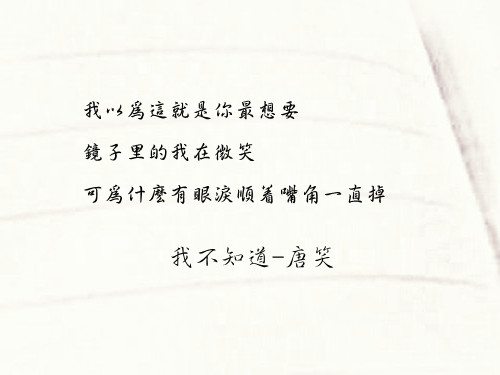 我以爲這就是你最想要
鏡子里的我在微笑
可爲什麽有眼淚順着嘴角一直掉
我不知道-唐笑